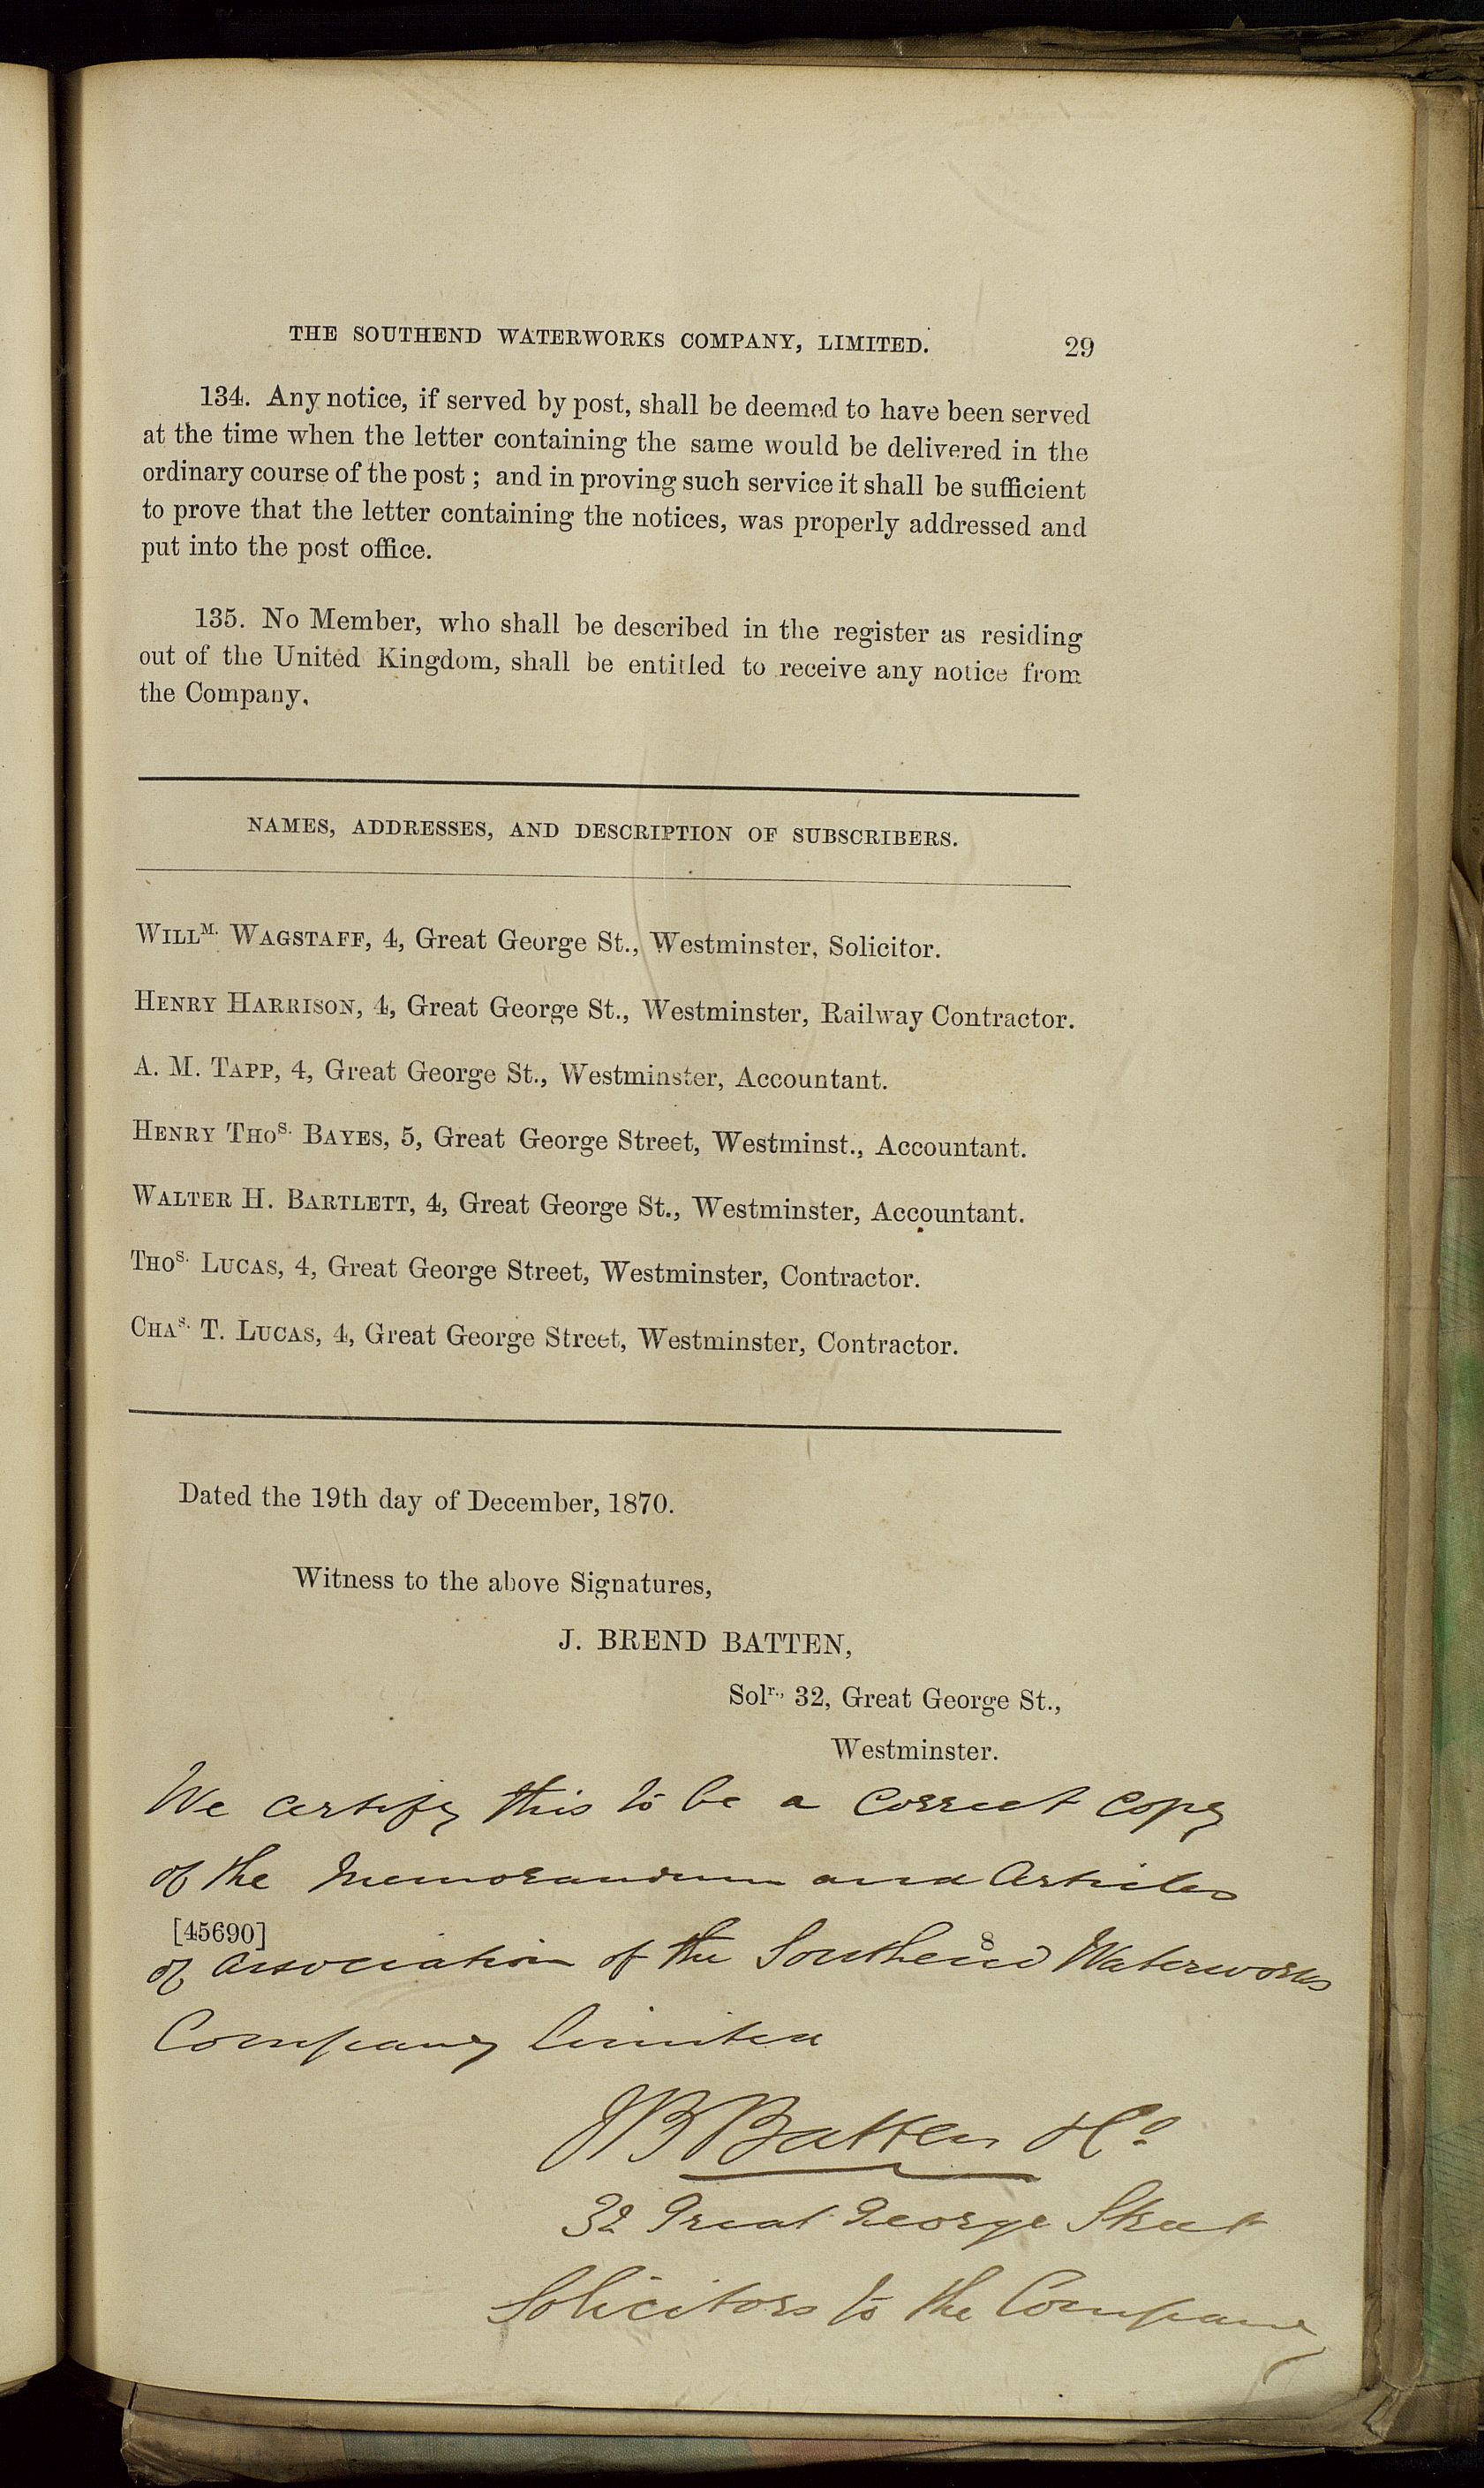 THE SOUTHEND WATERWORKS COMPANY, LIMITED. 29
134. Any notice, if served by post, shall be deemed to have been served
at the time when the letter containing the same would be delivered in the
ordinary course of the post ; and in proving such service it shall be sufficient
to prove that the letter containing the notices, was properly addressed and
put into the post office.
135. No Member, who shall be described in the register as residing
out of the United Kingdom, shall be entitled to receive any notice from
the Company.
NAMES, ADDRESSES, AND DESCRIPTION OF SUBSCRIBERS.
WILLM. WAGSTAFF, 4, Great George St., Westminster, Solicitor.
HENRY HARRISON, 4, Great George St., Westminster, Railway Contractor.
A. M. TAPP, 4, Great George St., Westminster, Accountant.
HENRY THOS. BAYES, 5, Great George Street, Westminst., Accountant.
WALTER H. BARTLETT, 4, Great George St., Westminster, Accountant.
THOS. LUCAS, 4, Great George Street, Westminster, Contractor.
CHAS. T. LUCAS, 4, Great George Street, Westminster, Contractor.
Dated the 19th day of December, 1870.
Witness to the above Signatures,
J. BREND BATTEN,
Solr., 32, Great George St.,
Westminster.
We certify this to be a correct copy
of the Memorandum and Articles
[45690] 8
of Association of the Southend Waterworks
Company limited
JB Batten & Co
32 Great George Street
Solicitors to the Company